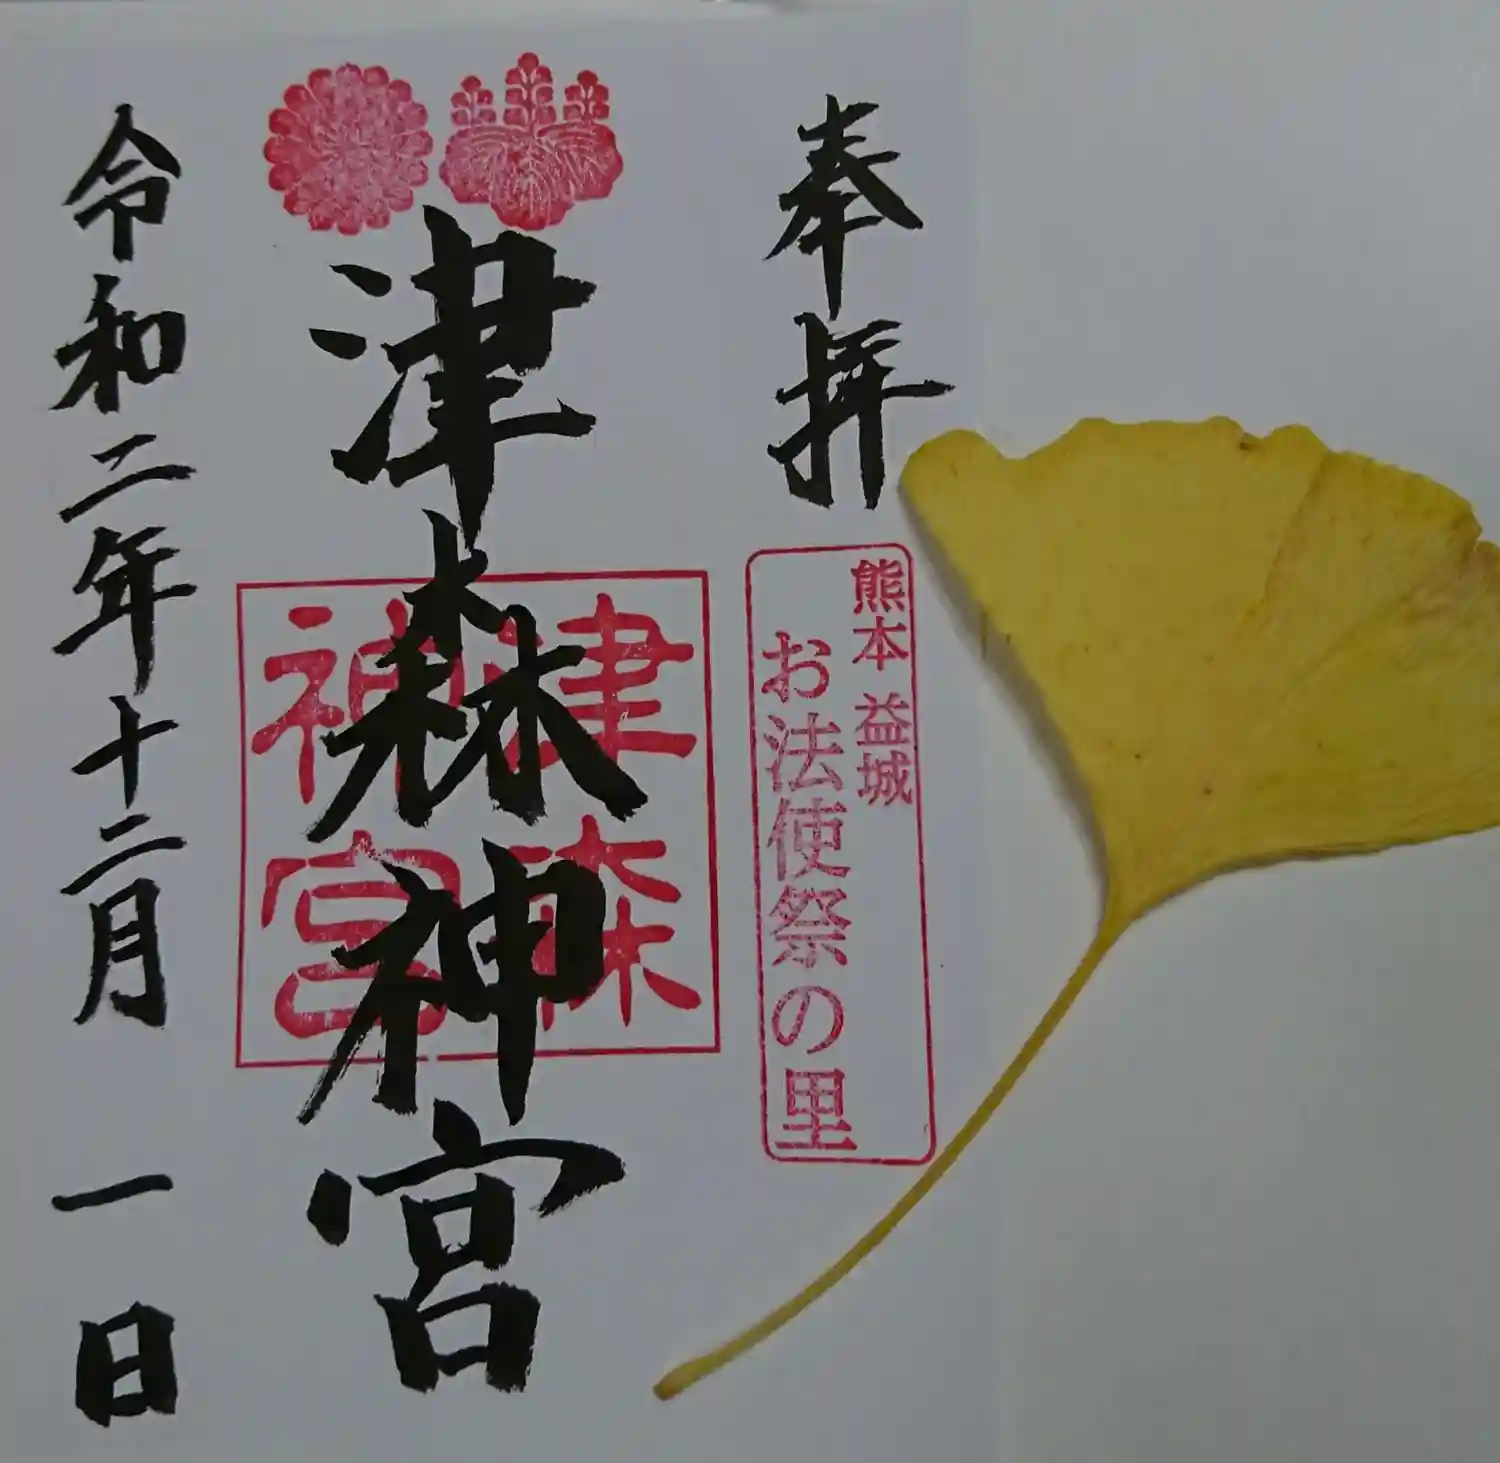 奉拝
熊本 益城
お法使祭の里
津森神宮
津森
神宮
令和二年十二月 一日